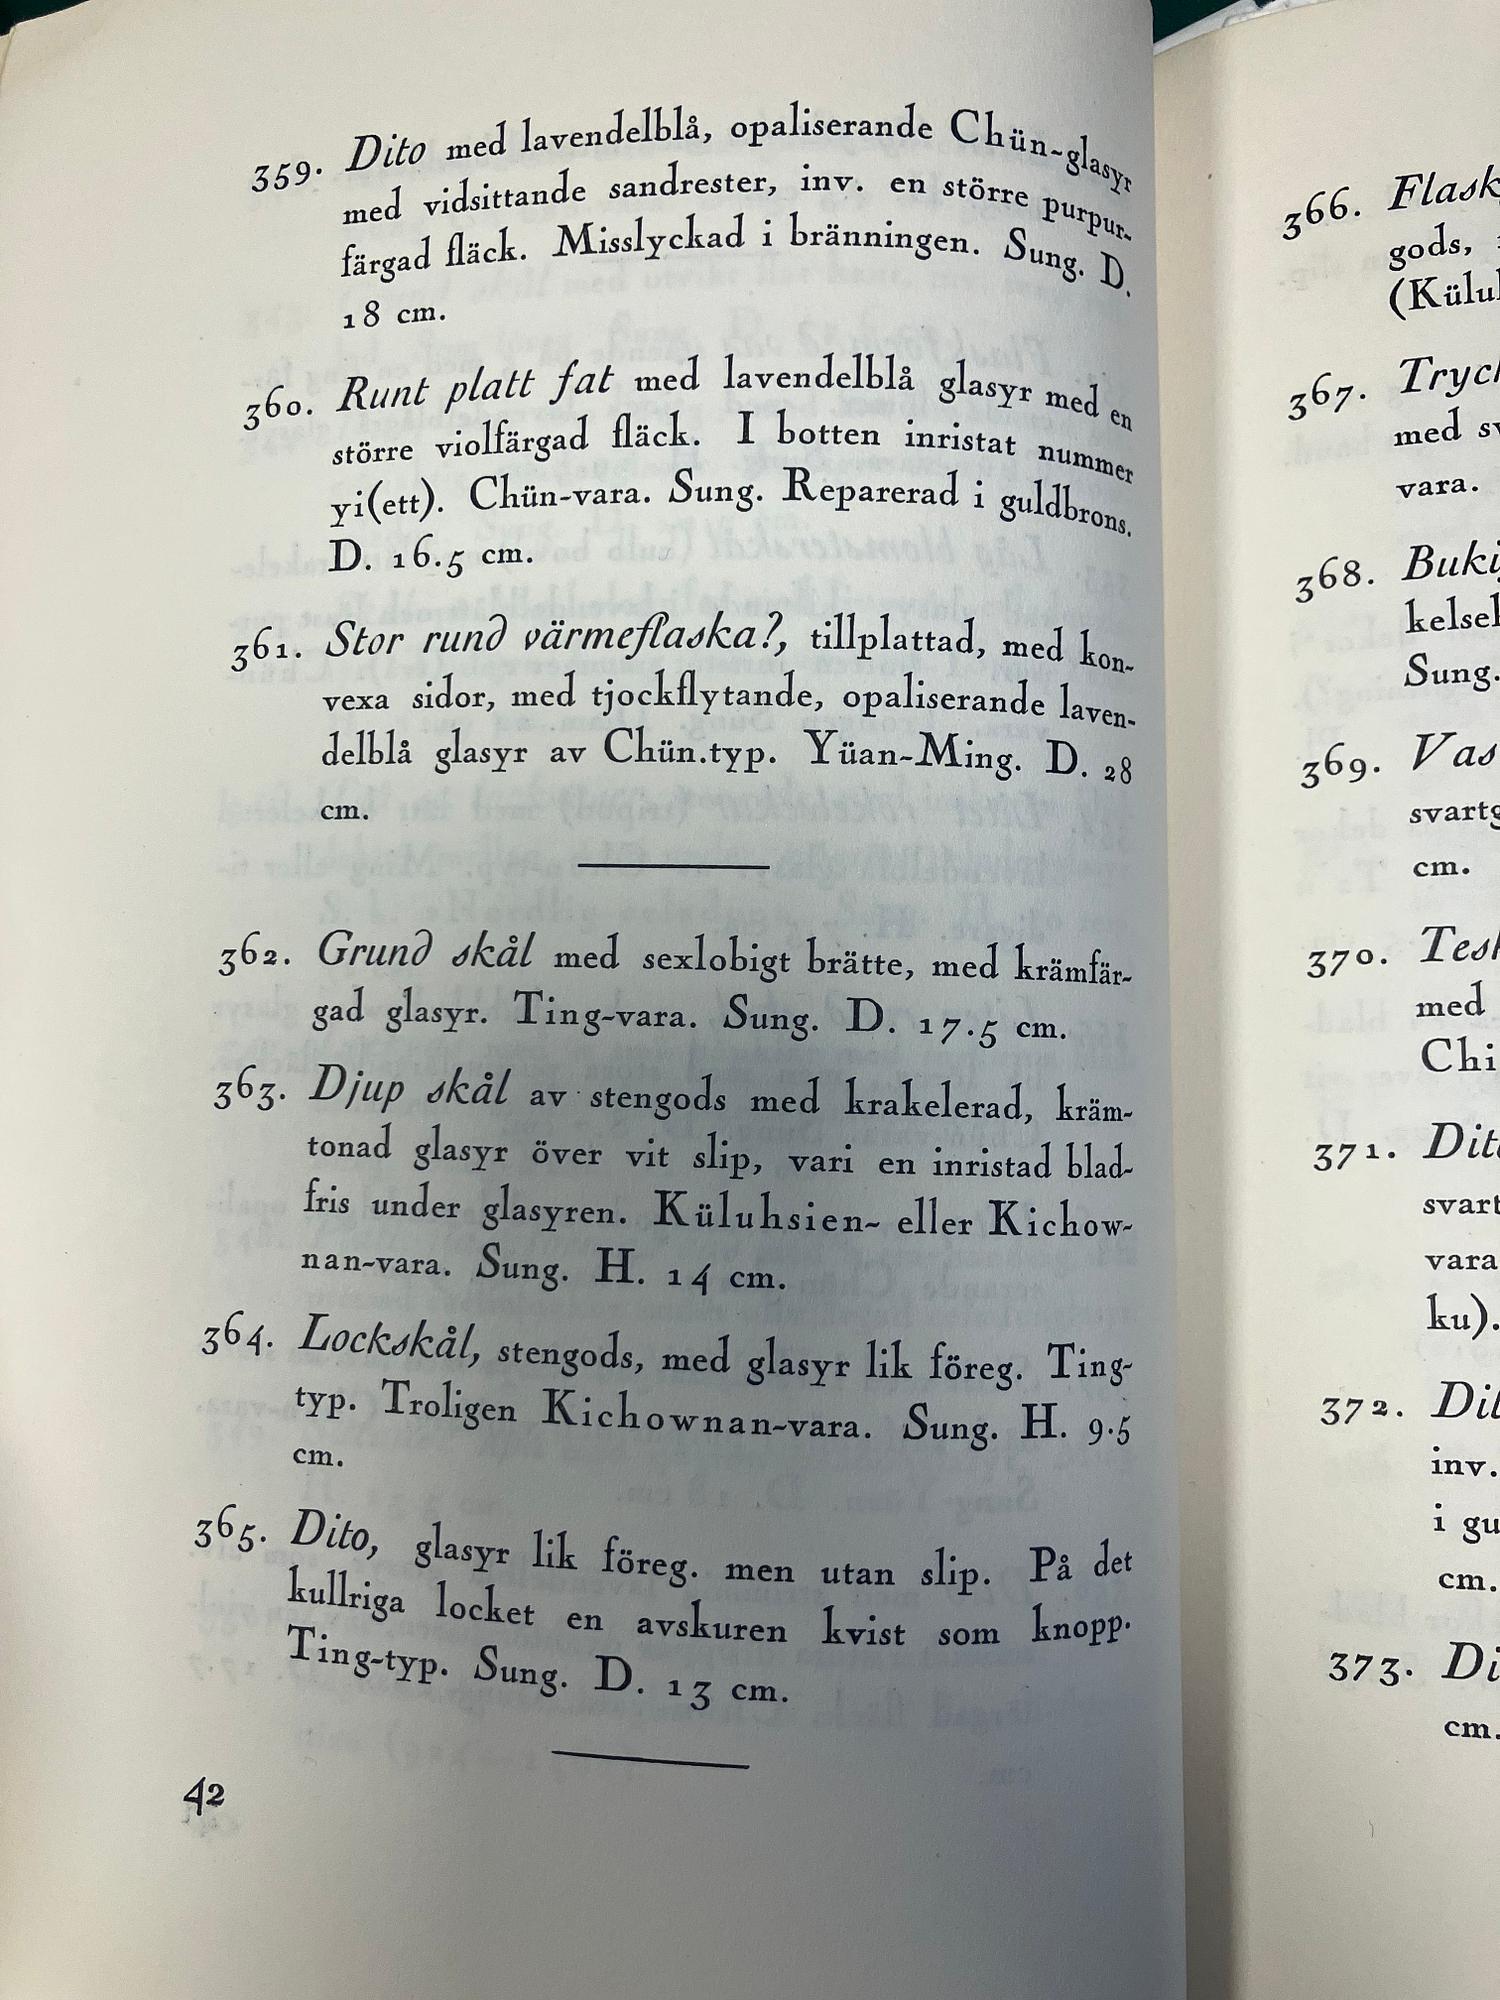 359. Dito med lavendelblå, opaliserande Chün-glasyr
med vidsittande sandrester, inv. en större purpur-
färgad fläck. Misslyckad i bränningen. Sung. D.
18 cm.
360. Runt platt fat med lavendelblå glasyr med en
större violfärgad fläck. I botten inristat nummer
yi(ett). Chün-vara. Sung. Reparerad i guldbrons.
D. 16.5 cm.
361. Stor rund värmeflaska?, tillplattad, med kon-
vexa sidor, med tjockflytande, opaliserande laven-
delblå glasyr av Chün.typ. Yüan-Ming. D. 28
cm.
362. Grund skål med sexlobigt brätte, med krämfär-
gad glasyr. Ting-vara. Sung. D. 17.5 cm.
363. Djup skål av stengods med krakelerad, kräm-
tonad glasyr över vit slip, vari en inristad blad-
fris under glasyren. Küluhsien- eller Kichow-
nan-vara. Sung. H. 14 cm.
364. Lockskål, stengods, med glasyr lik föreg. Ting-
typ. Troligen Kichownan-vara. Sung. H. 9.5
cm.
365. Dito, glasyr lik föreg. men utan slip. På det
kullriga locket en avskuren kvist som knopp.
Ting-typ. Sung. D. 13 cm.
42
366. Flask
gods,
(Külu
367. Tryc
med sv
vara.
368. Buki
kelse
Sung.
369. Vas
svartg
cm.
370. Tesk
med
Chi
371. Dit
svart
vara
ku).
372. Dit
inv.
i gu
cm.
373. Di
cm.